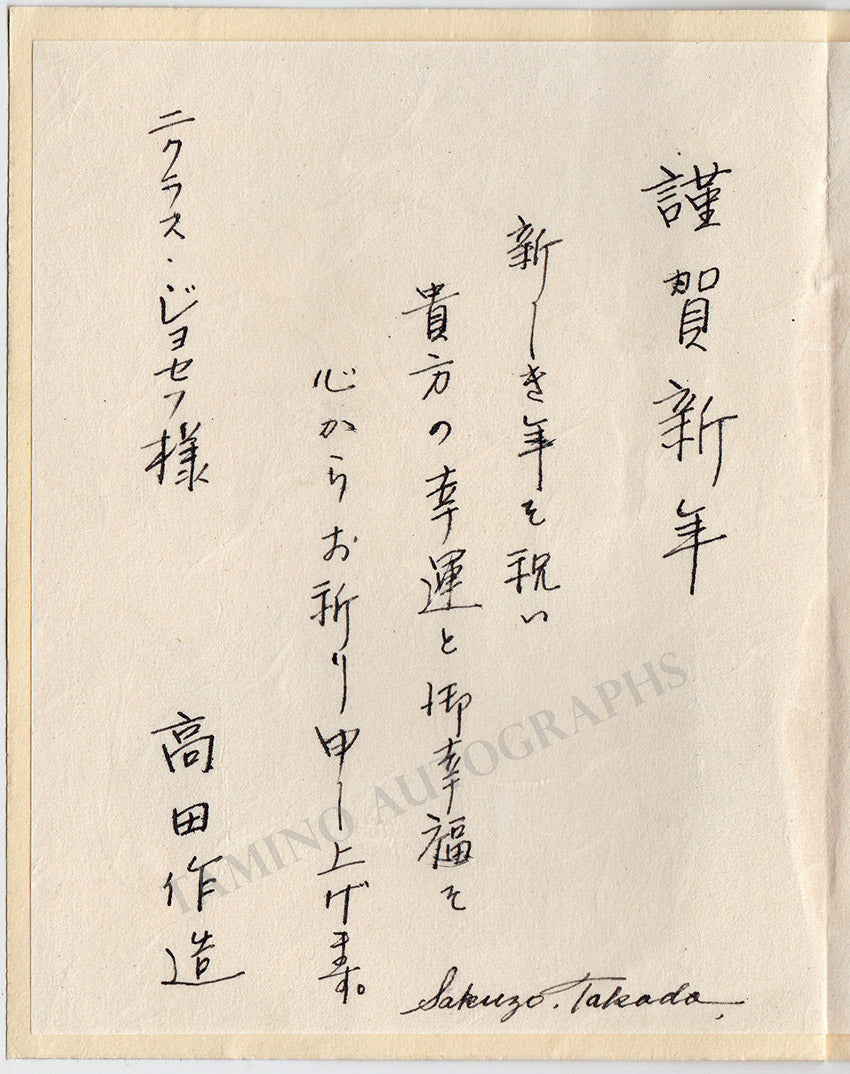 謹賀新年
新しき年を祝い
貴方の幸運と御幸福を
心からお祈り申し上げます。
ニクラス・ジョセフ様
高田作造
Sakuzo. Takada
TAMINO AUTOGRAPHS